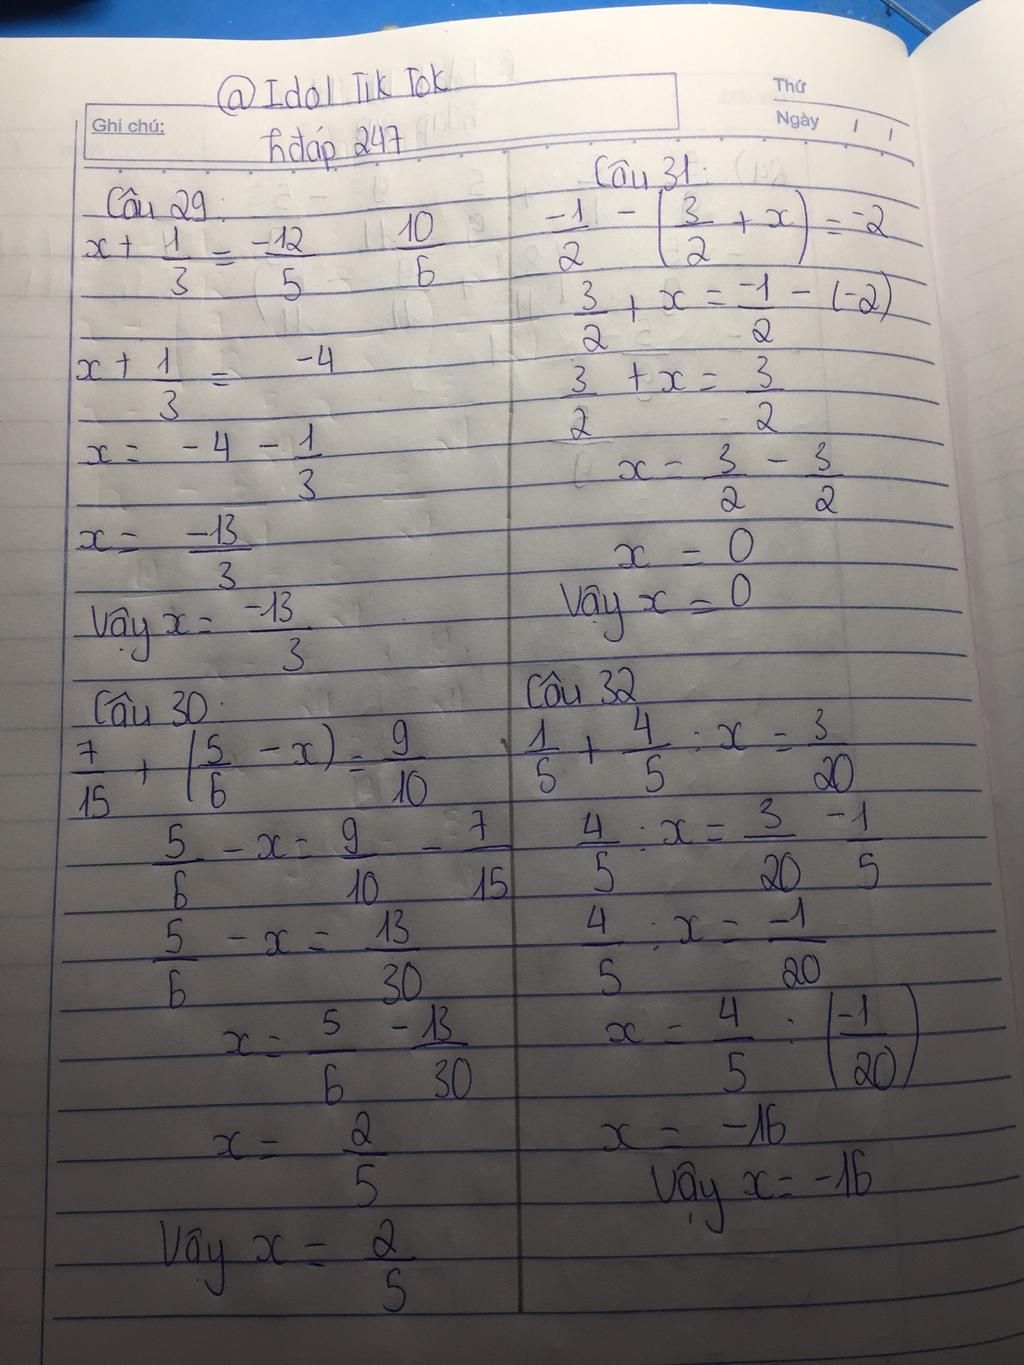 @ Idol Tik Tok
Ghi chú:
hđáp 247
Thứ
Ngày / /
Câu 29:
x + 1/3 = -12/5 10/6
x + 1/3 = -4
x = -4 - 1/3
x = -13/3
Vậy x = -13/3
Câu 30:
7/15 + (5/6 - x) = 9/10
5/6 - x = 9/10 - 7/15
5/6 - x = 13/30
x = 5/6 - 13/30
x = 2/5
Vậy x = 2/5
Câu 31:
-1/2 - (3/2 + x) = -2
3/2 + x = -1/2 - (-2)
3/2 + x = 3/2
x = 3/2 - 3/2
x = 0
Vậy x = 0
Câu 32
1/5 + 4/5 : x = 3/20
4/5 : x = 3/20 - 1/5
4/5 : x = -1/20
x = 4/5 : (-1/20)
x = -16
Vậy x = -16